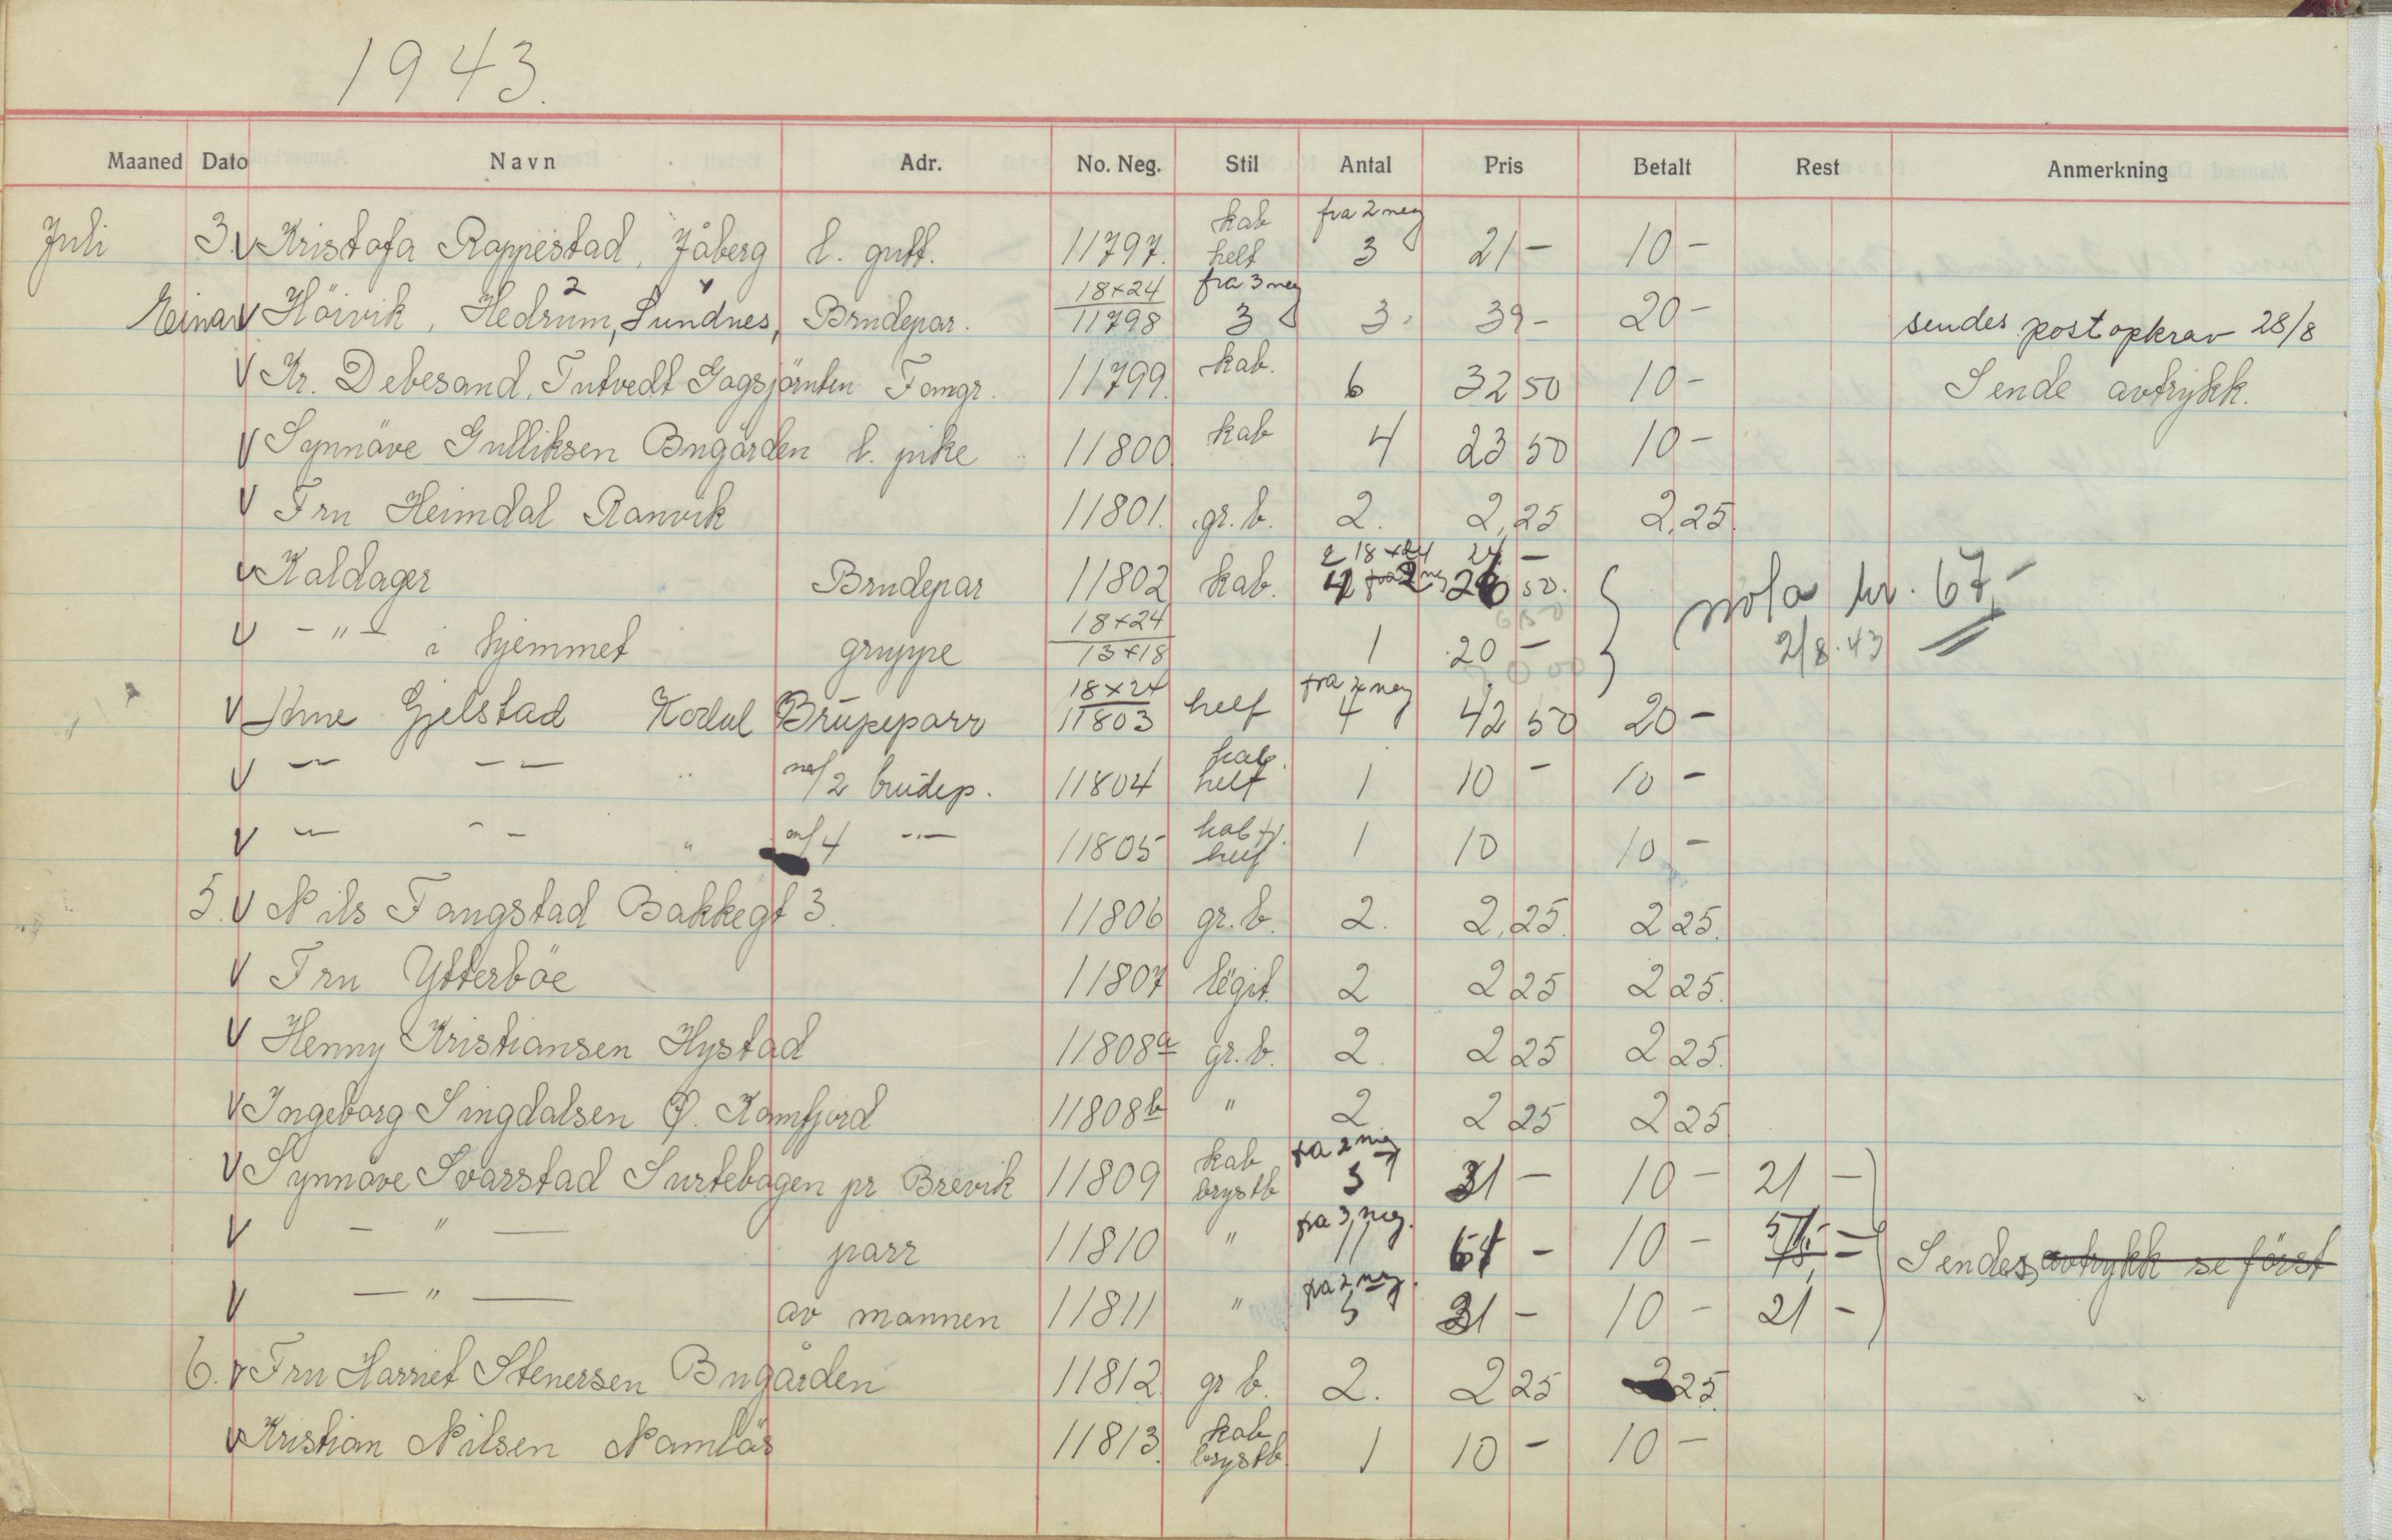 1943.
Maaned Dato Navn Adr. No. Neg. Stil Antal Pris Betalt Rest Anmerkning
Juli 3. V Kristofa Rappestad, Jåberg l. gutt. 11797. kab helt fra 2 neg 3 21 – 10 –
Einar V Höivik, Hedrum, Sundnes, Brudepar. 18×24 11798 fra 3 neg 3 3 39 – 20 – sendes postopkrav 28/8
V Kr. Debesand, Tutvedt Gogsjörnten Famgr. 11799. kab. 6 32 50 10 – Sende avtrykk.
V Synnöve Gulliksen Bugården l. pike 11800 kab 4 23 50 10 –
V Fru Heimdal Ranvik 11801. gr. b. 2. 2,25 2,25.
V Kaldager Brudepar 11802 kab. 2 18×24 24 – 4 fra 2 neg 26 50. } nota kr. 67,–
V – " – i hjemmet gruppe 18×24 13×18 1 20 – 2/8.43
V Arne Gjelstad Kodal Brupeparr 18×24 11803 helf fra 2 neg 4 42 50 20 –
V – – – " m/2 brudep. 11804 kab. helf 1 10 – 10 –
V – – – " m/4 – " – 11805 kab helf 1 10 10 –
5. V Nils Fangstad Bakkegt 3. 11806 gr. b. 2. 2,25. 2 25.
V Fru Ytterböe 11807 legit. 2 2 25 2 25.
V Henny Kristiansen Hystad 11808a gr. b. 2. 2 25 2 25.
V Ingeborg Singdalsen Ø. Kamfjord 11808b " 2 2 25 2 25
V Synnöve Svarstad Surtebogen pr Brevik 11809 kab brystb fra 2 neg 5 31 – 10 – 21 –
V – " – parr 11810 " fra 3 neg. 11 64 – 10 – 54 – Sendes avtrykk se först
V – " – av mannen 11811 " fra 2 neg. 5 31 – 10 – 21 –
6. V Fru Harriet Stenersen Bugården 11812. gr b. 2. 2 25 2 25.
V Kristian Nilsen Namlös 11813. kab brystb 1 10 – 10 –